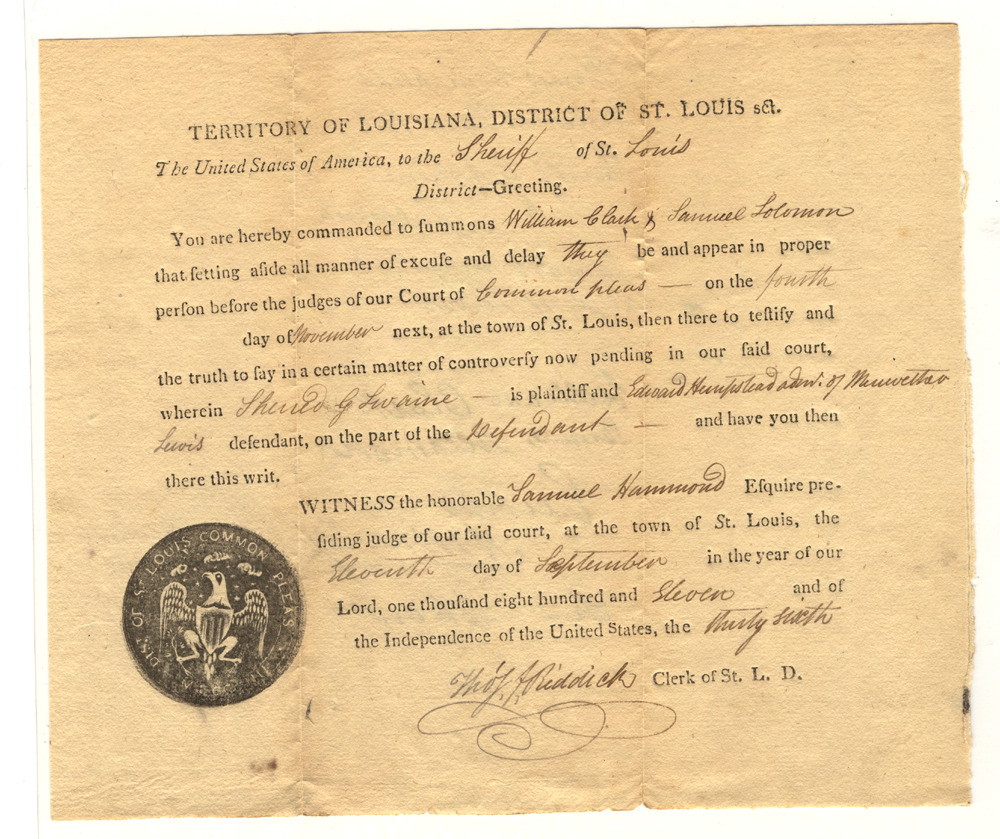 TERRITORY OF LOUISIANA, DISTRICT OF ST. LOUIS sct.
The United States of America, to the Sheriff of St. Louis
District—Greeting.
You are hereby commanded to ſummons William Clark & Samuel Solomon
that ſetting aſide all manner of excuſe and delay they be and appear in proper
perſon before the judges of our Court of Common pleas — on the fourth
day of November next, at the town of St. Louis, then there to teſtify and
the truth to ſay in a certain matter of controverſy now pending in our ſaid court,
wherein Shered G Swaine — is plaintiff and Edward Hempstead adm. of Meriwether
Lewis defendant, on the part of the Defendant — and have you then
there this writ.
WITNESS the honorable Samuel Hammond Eſquire pre-
ſiding judge of our ſaid court, at the town of St. Louis, the
Eleventh day of September in the year of our
Lord, one thouſand eight hundred and Eleven and of
the Independence of the United States, the thirty sixth
Thos. F Riddick Clerk of St. L. D.
ST. LOUIS COMMON PLEAS